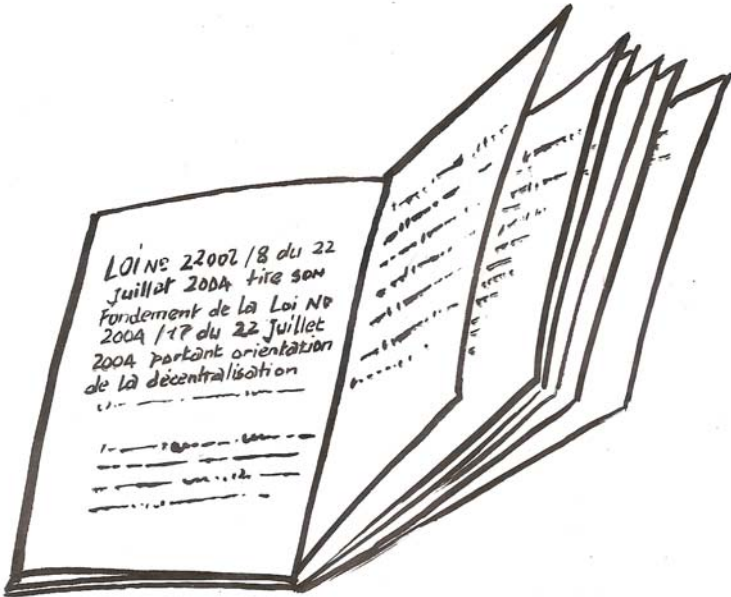 LOI Nº 22002/8 du 22
Juillet 2004 tire son
Fondement de la Loi Nº
2004/17 du 22 Juillet
2004 portant orientation
de la décentralisation